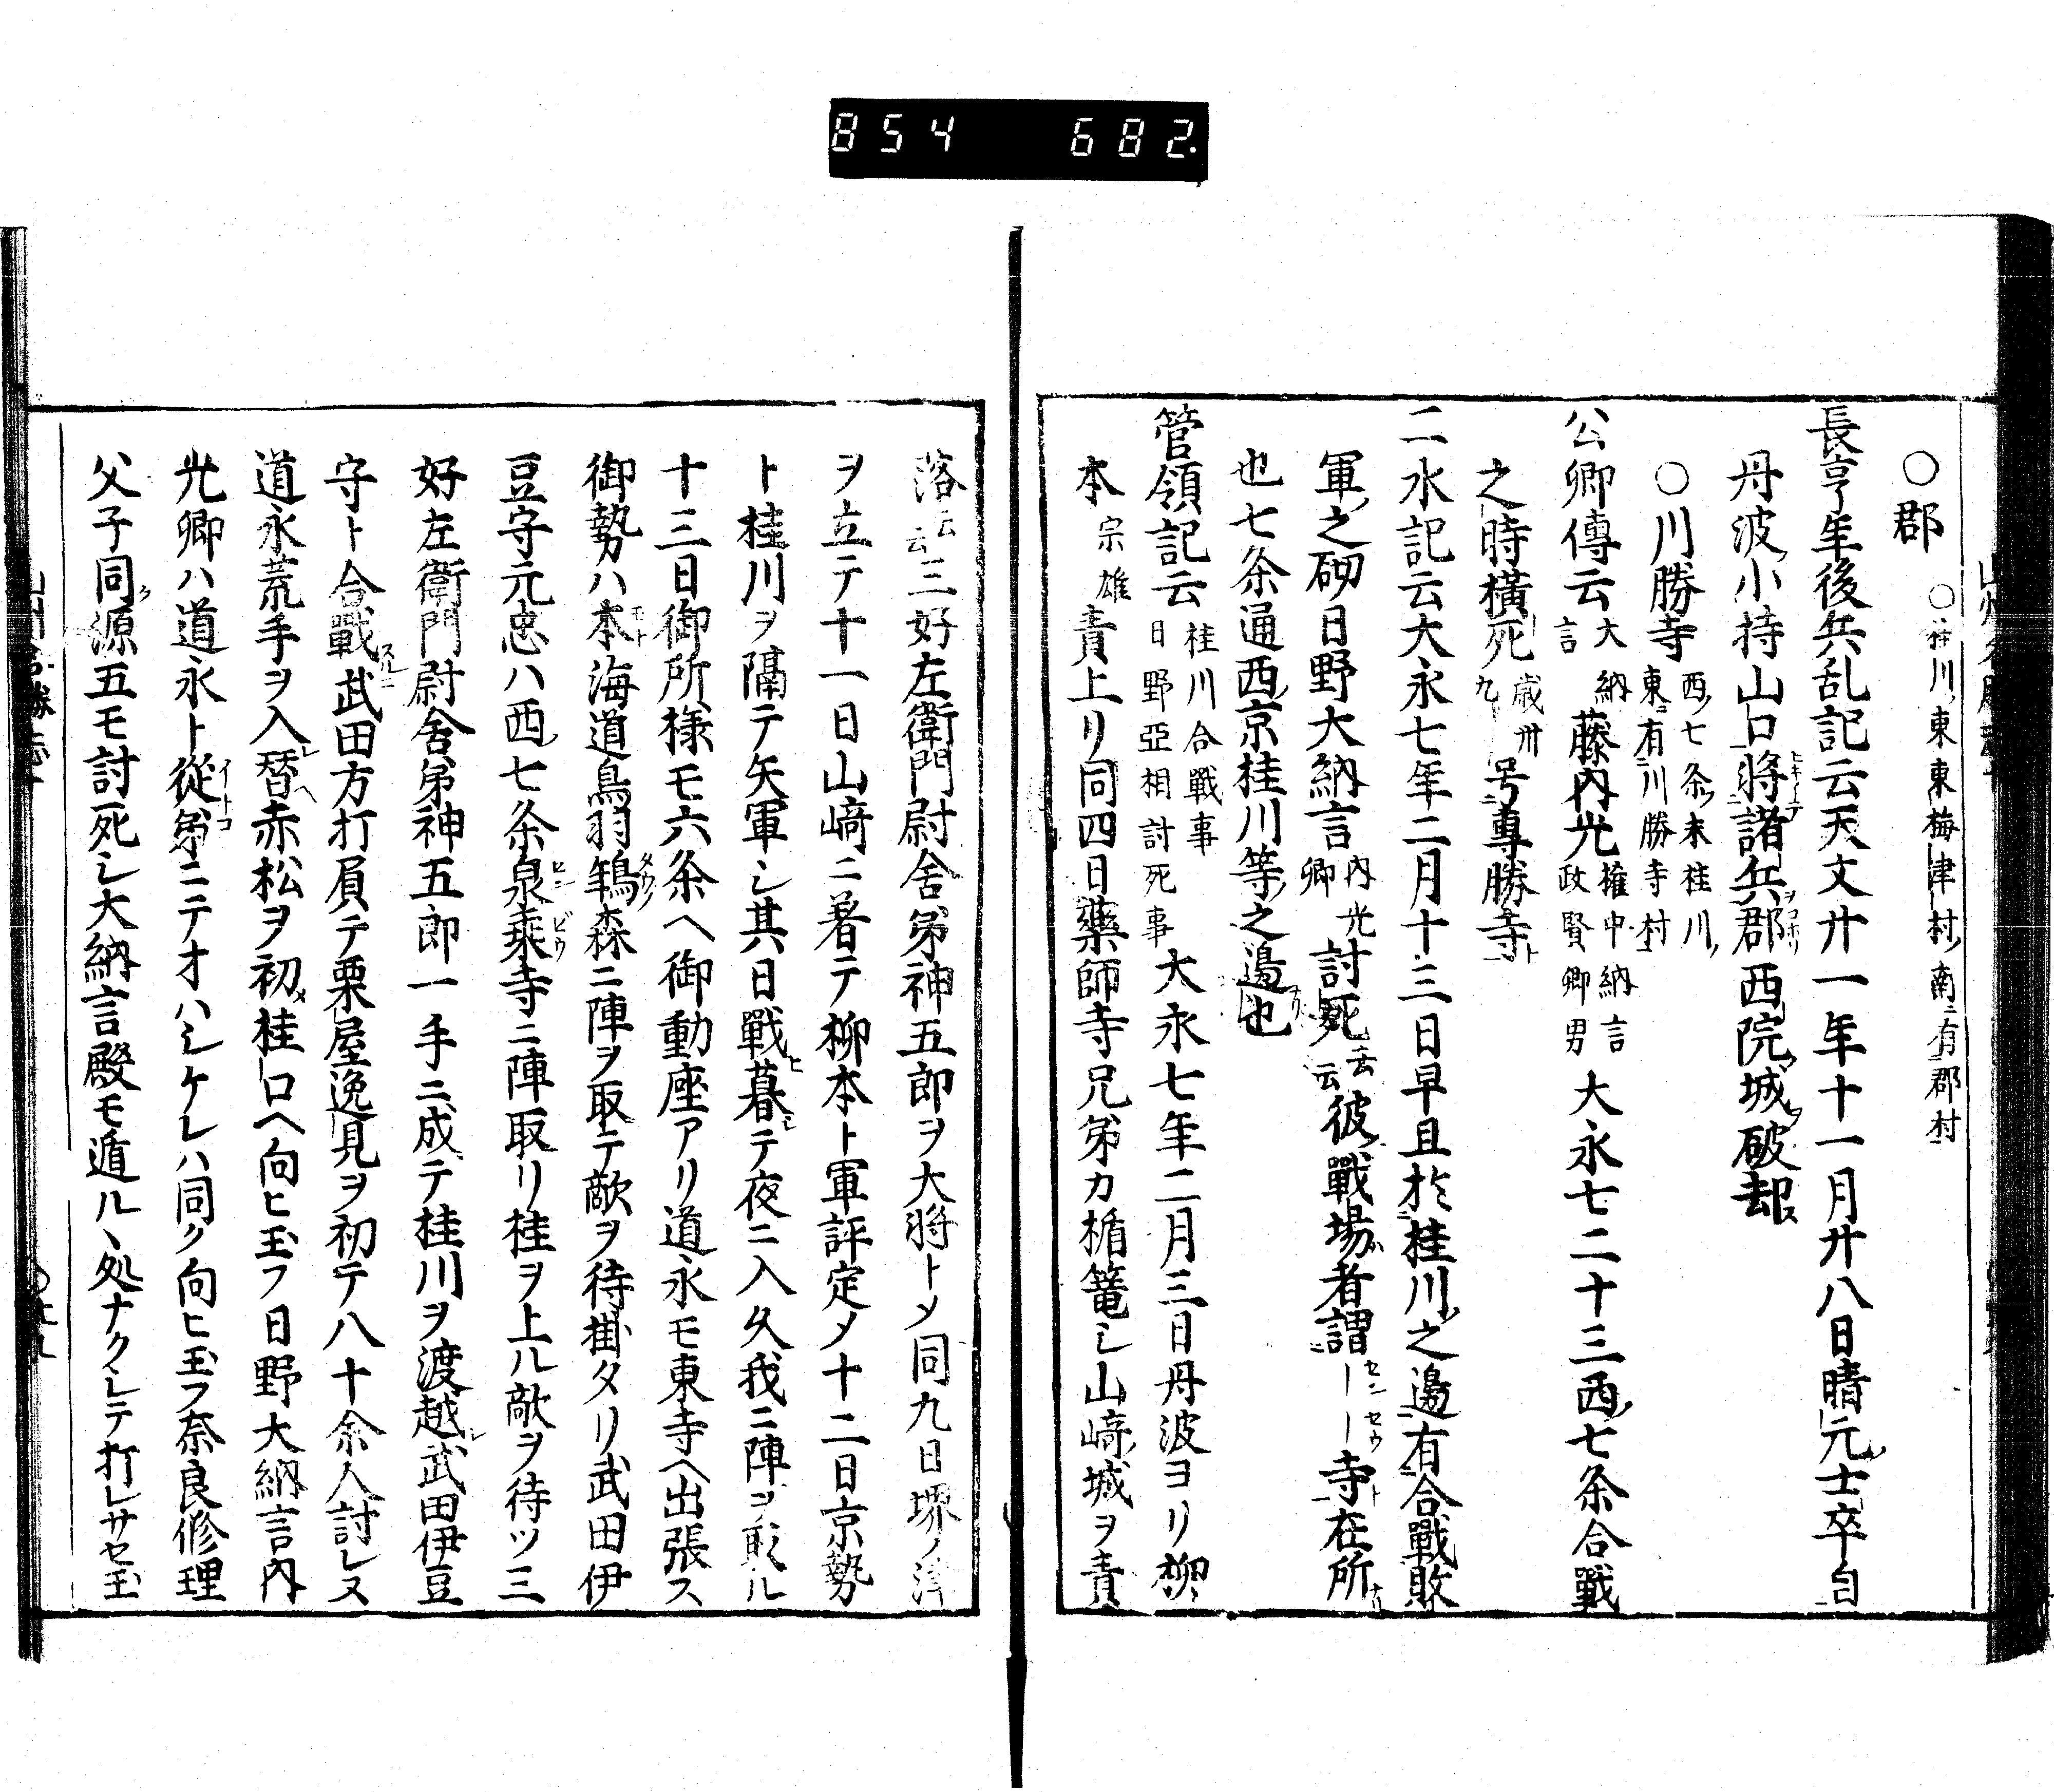 854 682.
○郡 ○桂川東東梅津村南ニ有郡村
長亨年後兵乱記云天文廾一年十一月廾八日晴元士卒自
丹波小持山口將諸兵郡西院城破却
○川勝寺 西七条末桂川東ニ有川勝寺村
公卿傳云 大納言 藤内光 権中納言政賢卿男 大永七二十三西七条合戰
之時横死 歳卅九 号專勝寺
二水記云大永七年二月十三日早旦於桂川之邊有合戰敗
軍之砌日野大納言 内光卿 討死云云彼戰場者謂――寺在所
也七条通西京桂川等之邊也
管領記云 桂川合戰事日野亞相討死事 大永七年二月三日丹波ヨリ柳
本 宗雄 責上リ同四日藥師寺兄弟カ楯篭シ山﨑城ヲ責
落云云三好左衛門尉舍弟神五郎ヲ大將トメ同九日堺ノ津
ヲ立テ十一日山﨑ニ着テ柳本ト軍評定メ十二日京勢
ト桂川ヲ隔テ矢軍シ其日戰暮テ夜ニ入久我ニ陣ヲ取ル
十三日御所様モ六条ヘ御動座アリ道永モ東寺ヘ出張ス
御勢ハ本海道鳥羽鴾森ニ陣ヲ取テ敵ヲ待掛タリ武田伊
豆守元忠ハ西七条泉乘寺ニ陣取リ桂ヲ上ル敵ヲ待ツ三
好左衛門尉舍弟神五郎一手ニ成テ桂川ヲ渡越武田伊豆
守ト合戰武田方打屓テ栗屋逸見ヲ初テ八十余人討レヌ
道永荒手ヲ入替赤松ヲ初桂口ヘ向ヒ玉フ日野大納言内
光卿ハ道永ト從弟ニテオハシケレハ同ク向ヒ玉フ奈良修理
父子同源五モ討死シ大納言殿モ遁ルヽ処ナクシテ打レサセ玉